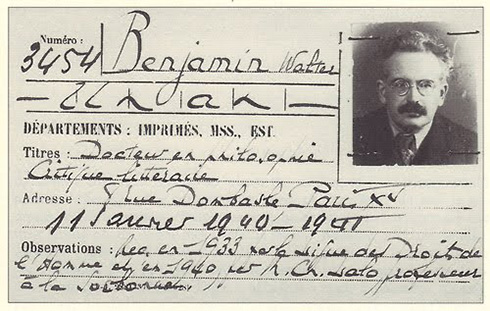 Numéro :
3454 Benjamin Walter
— Un an —
DÉPARTEMENTS : IMPRIMÉS, MSS., EST.
Titres : Docteur en philosophie
Critique littéraire
Adresse : rue Dombasle Paris XV
11 Janvier 1940 - 1941
Observations : rec. en 1933 par la Ligue des Droits de
l'Homme et en 1940 par M. Ch. Lalo professeur
à la Sorbonne.